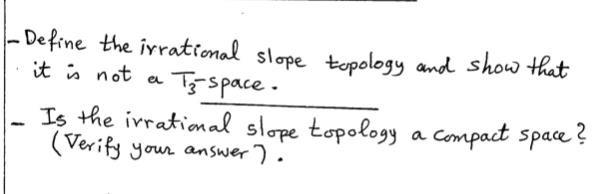 - Define the irrational slope topology and show that
it is not a T₃-space.
- Is the irrational slope topology a compact space?
(Verify your answer).